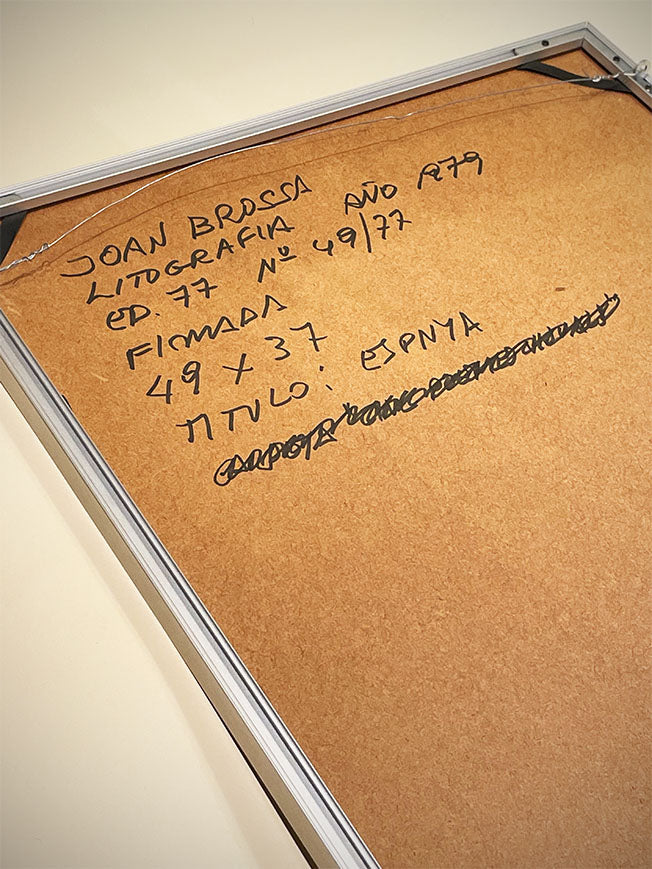 JOAN BROSSA
LITOGRAFIA AÑO 1979
ED. 77 Nº 49/77
FIRMADA
49 X 37
TITULO: ESPNYA
CARPETA